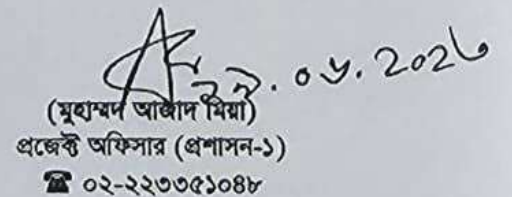 ২০২৬
(মুহাম্মদ আজাদ মিয়া)
প্রজেক্ট অফিসার (প্রশাসন-১)
☎ ০২-২২৩৩৫১০৪৮